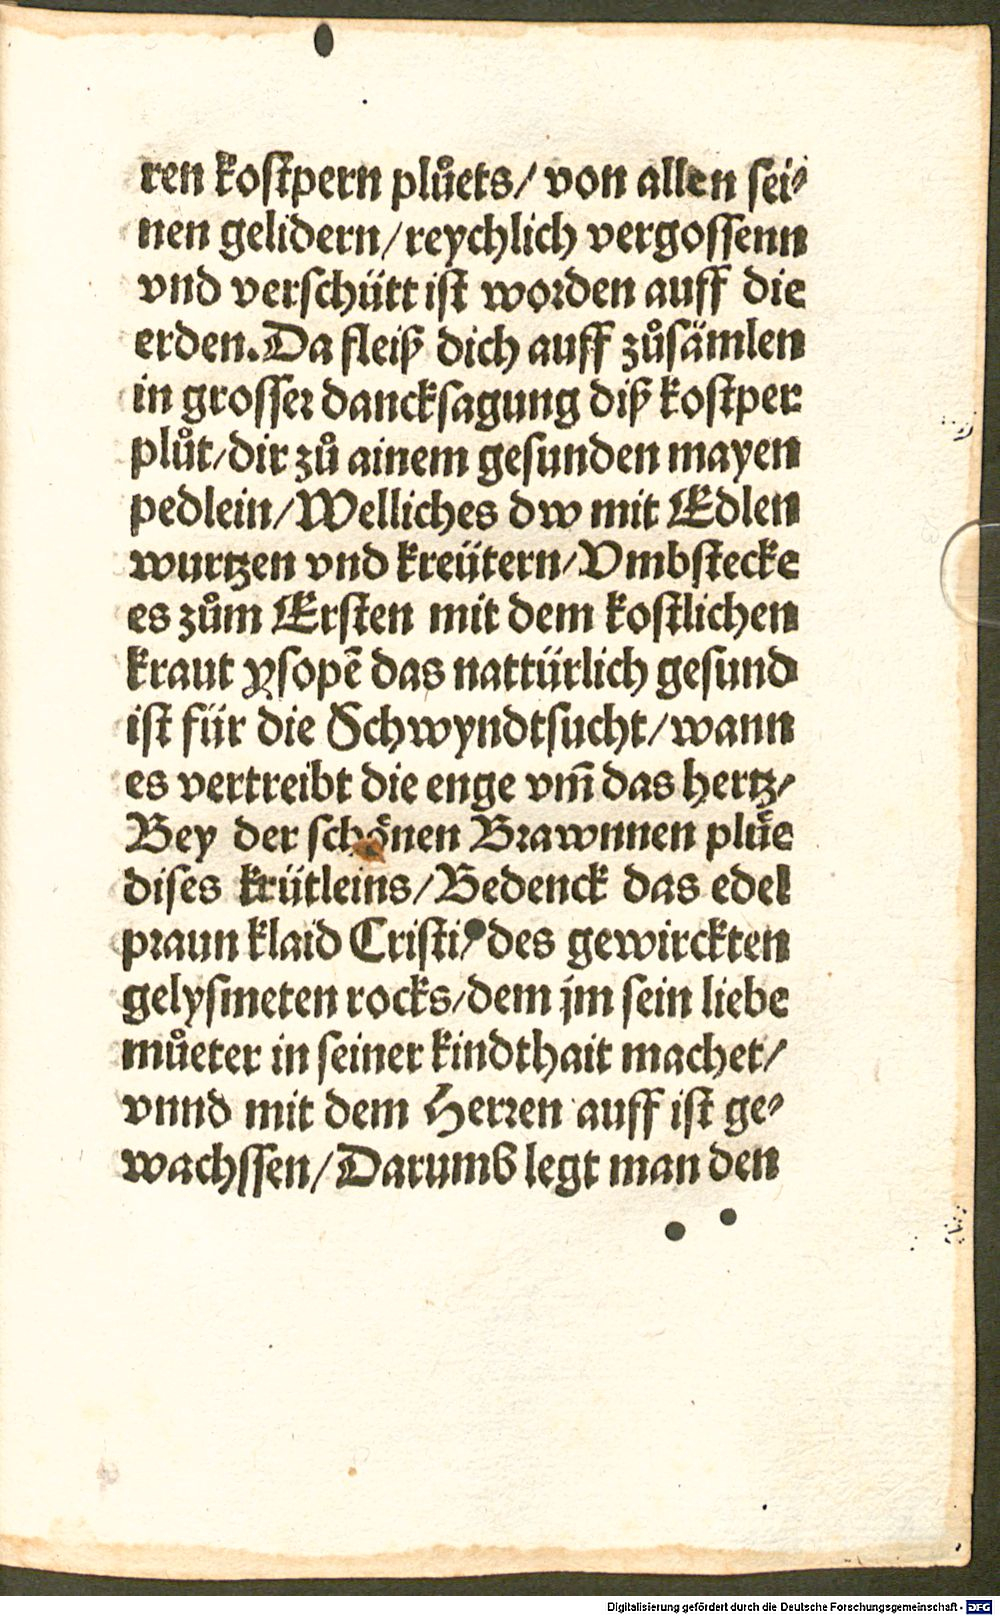 ren kostpern plůets/ von allen sei⸗
nen gelidern/ reychlich vergossenn
vnd verschütt ist worden auff die
erden. Da fleiß dich auff zůsämlen
in grosser dancksagung diß kostper
plůt/ dir zů ainem gesunden mayen
pedlein/ Welliches dw mit Edlen
wurtzen vnd kreütern/ Vmbstecke
es zům Ersten mit dem kostlichen
kraut ysopẽ das nattürlich gesund
ist für die Schwyndtsucht/ wann
es vertreibt die enge vm̃ das hertz/
Bey der schoͤnen Brawnnen pluͤe
dises krütleins/ Bedenck das edel
praun klaid Cristi/ des gewirckten
gelysmeten rocks/ dem jm sein liebe
můeter in seiner kindthait machet/
vnnd mit dem Herren auff ist ge⸗
wachssen/ Darumb legt man den
Digitalisierung gefördert durch die Deutsche Forschungsgemeinschaft - DFG